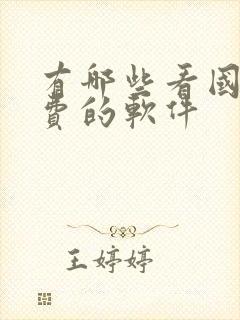 有哪些看國
費的軟件
王婷婷